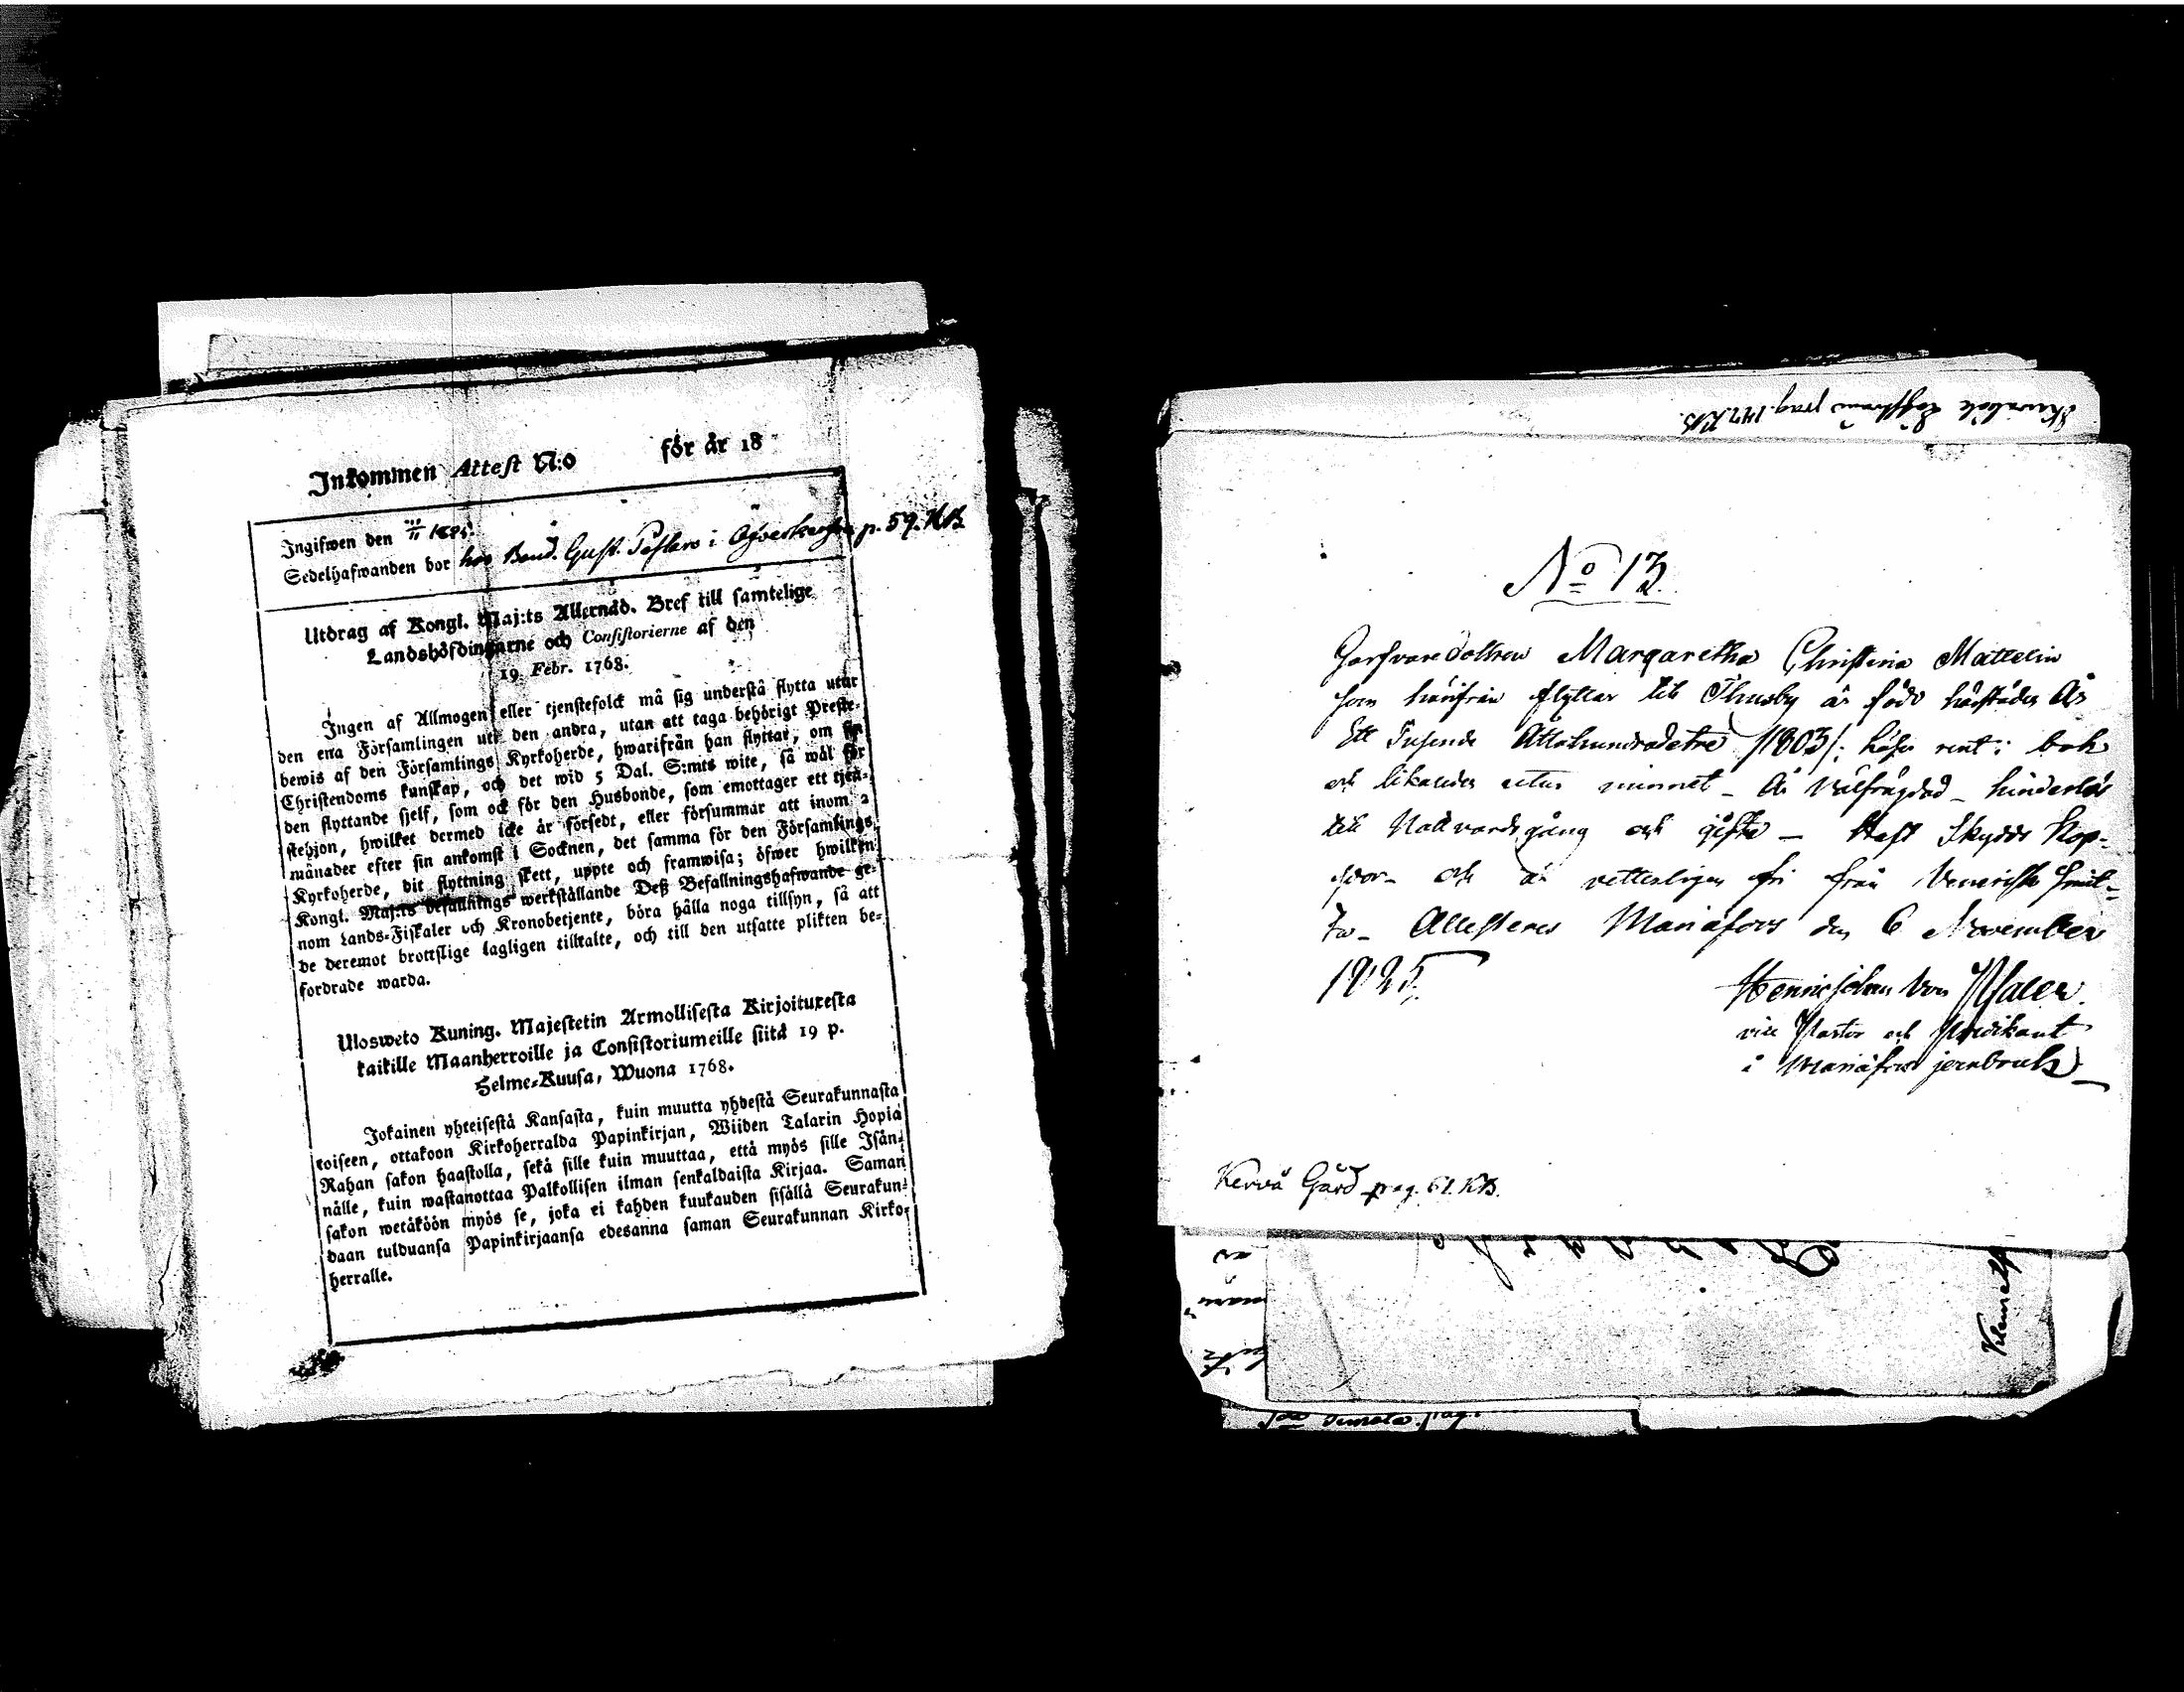 Inkommen Attest N:o för år 18
Ingifwen den 1825.
Sedelhafwanden bor hos Bond. Gust. i p. 59. KB
Utdrag af Kongl. Maj:ts Allernåd. Bref till samtelige
Landshöfdingarne och Consistorierne af den
19. Febr. 1768.
Ingen af Allmogen eller tjenstefolck må sig understå flytta utur
den ena Församlingen uti den andra, utan att taga behörigt Preste-
bewis af den Församlings Kyrkoherde, hwarifrån han flyttar, om sin
Christendoms kunskap, och det wid 5 Dal. S:mts wite, så wäl för
den flyttande sjelf, som ock för den Husbonde, som emottager ett tjen-
stehjon, hwilket dermed icke är försedt, eller försummar att inom 2
månader efter sin ankomst i Socknen, det samma för den Församlings
Kyrkoherde, dit flyttning skett, uppte och framwisa; öfwer hwilken
Kongl. Maj:ts befallnings werkställande Deß Befallningshafwande ge-
nom Lands-Fiskaler och Kronobetjente, böra hålla noga tillsyn, så att
de deremot brottslige lagligen tilltalte, och till den utsatte plikten be-
fordrade warda.
Ulosweto Kuning. Majestetin Armollisesta Kirjoituxesta
kaikille Maanherroille ja Consistoriumeille siitä 19 p.
Helme-Kuusa, Wuona 1768.
Jokainen yhteisestä Kansasta, kuin muutta yhdestä Seurakunnasta
toiseen, ottakoon Kirkoherralda Papinkirjan, Wiiden Talarin Hopia
Rahan sakon haastolla, sekä sille kuin muuttaa, että myös sille Isän-
nälle, kuin wastanottaa Palkollisen ilman senkaldaista Kirjaa. Saman
sakon wetäköön myös se, joka ei kahden kuukauden sisällä Seurakun-
daan tulduansa Papinkirjaansa edesanna saman Seurakunnan Kirko-
herralle.
pag. 147. KB.
No 13.
Garfvaredottren Margaretha Christina Mattelin
som härifrån flyttar till Thusby är född härstädes År
Ett Tusende Åttahundradetre /1803/: läser rent i bok
och likaledes utur minnet - Är Välfrägdad - hinderlös
till Nattvardsgång och gifte - Haft Skydds Kop-
por - och är vetterligen fri från Veneriske Smit-
ta - Attesteras Mariäfors den 6 November
1825.
Henric Johan von Pfaler.
vice Pastor och Predikant
i Mariäfors jernbruk
Kervå Gård pag. 61. KB.